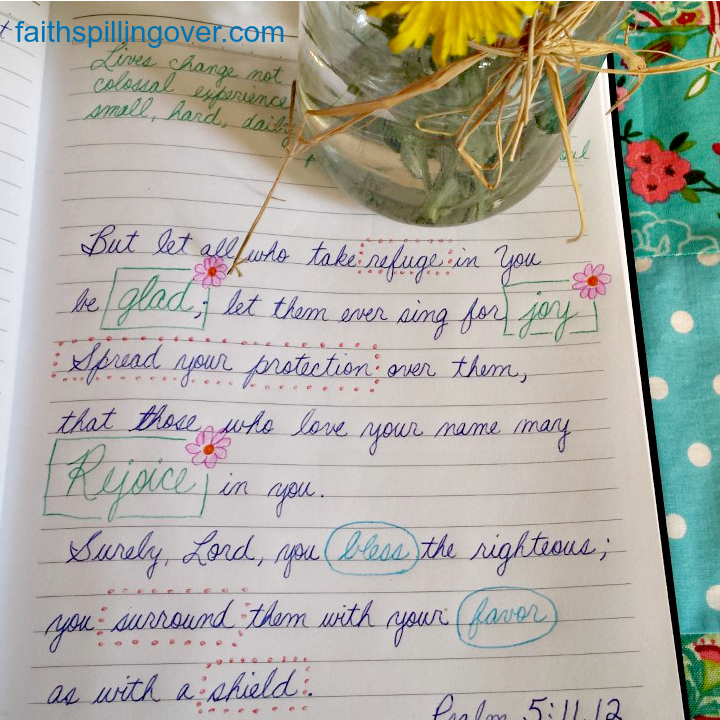 faithspillingover.com
Lives change not
colossal experience
small, hard, daily
But let all who take refuge in You
be glad; let them ever sing for joy
Spread your protection over them,
that those who love your name may
Rejoice in you.
Surely, Lord, you bless the righteous;
you surround them with your favor
as with a shield.
Psalm 5:11,12